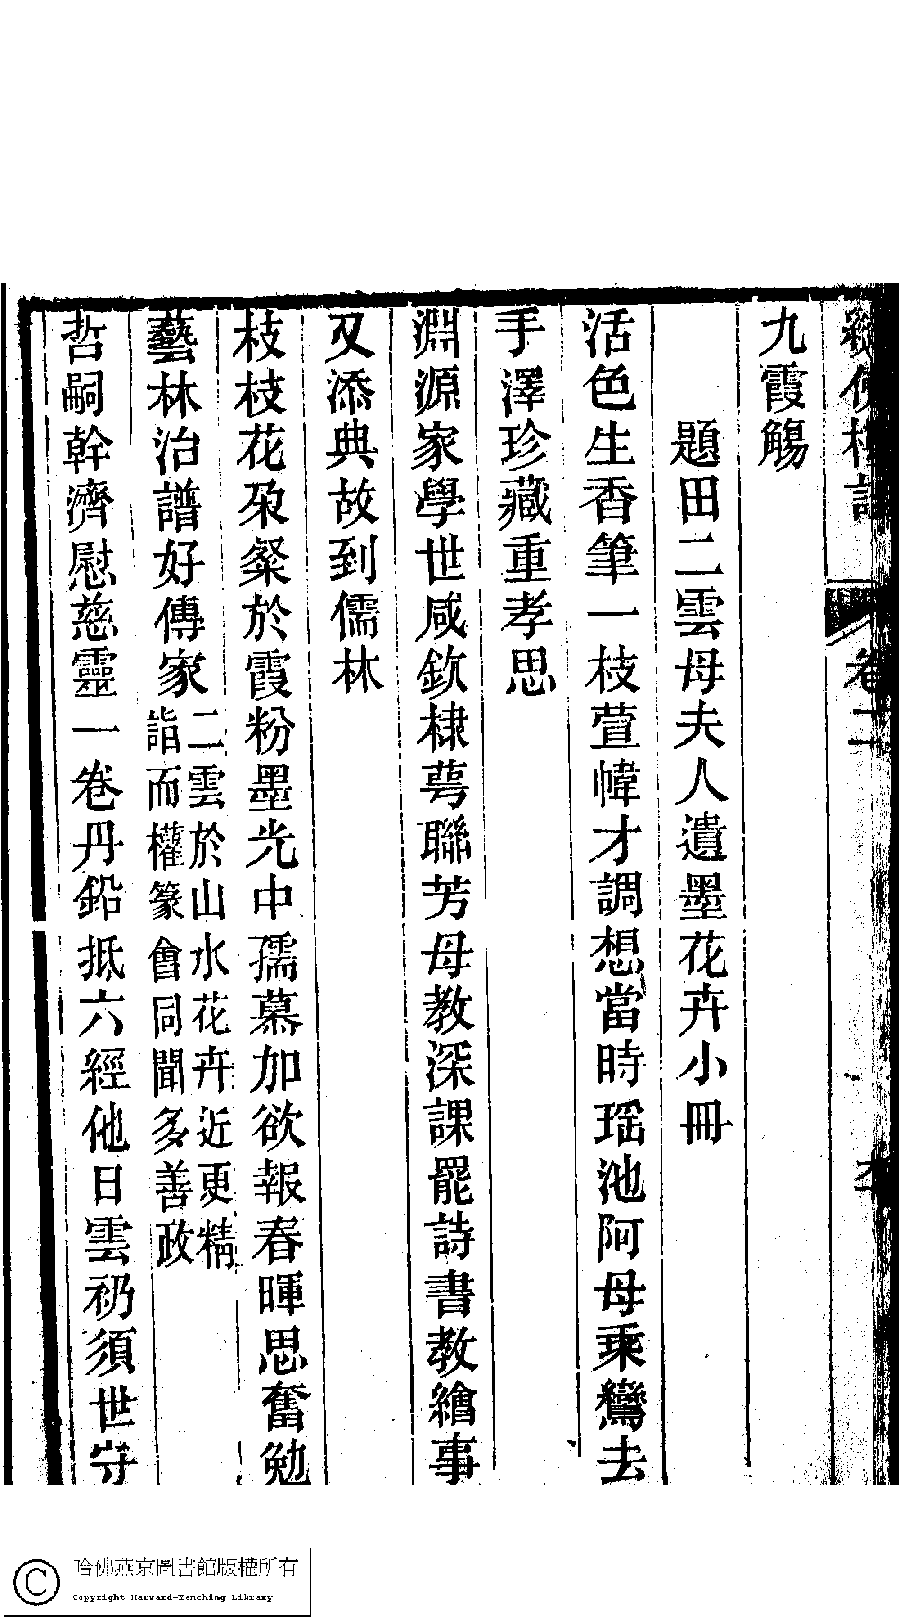 九霞觴
題田二雲母夫人遺墨花卉小冊
活色生香筆一枝萱幃才調想當時瑶池阿母乘鸞去
手澤珍藏重孝思
淵源家學世咸欽棣萼聯芳母教深課罷詩書教繪事
又添典故到儒林
枝枝花朶粲於霞粉墨光中孺慕加欲報春暉思奮勉
藝林治譜好傳家二雲於山水花卉近更精
詣而權篆會同聞多善政
哲嗣幹濟慰慈靈一卷丹鉛抵六經他日雲礽須世守
卷二
哈佛燕京圖書館版權所有
Copyright Harvard-Yenching Library